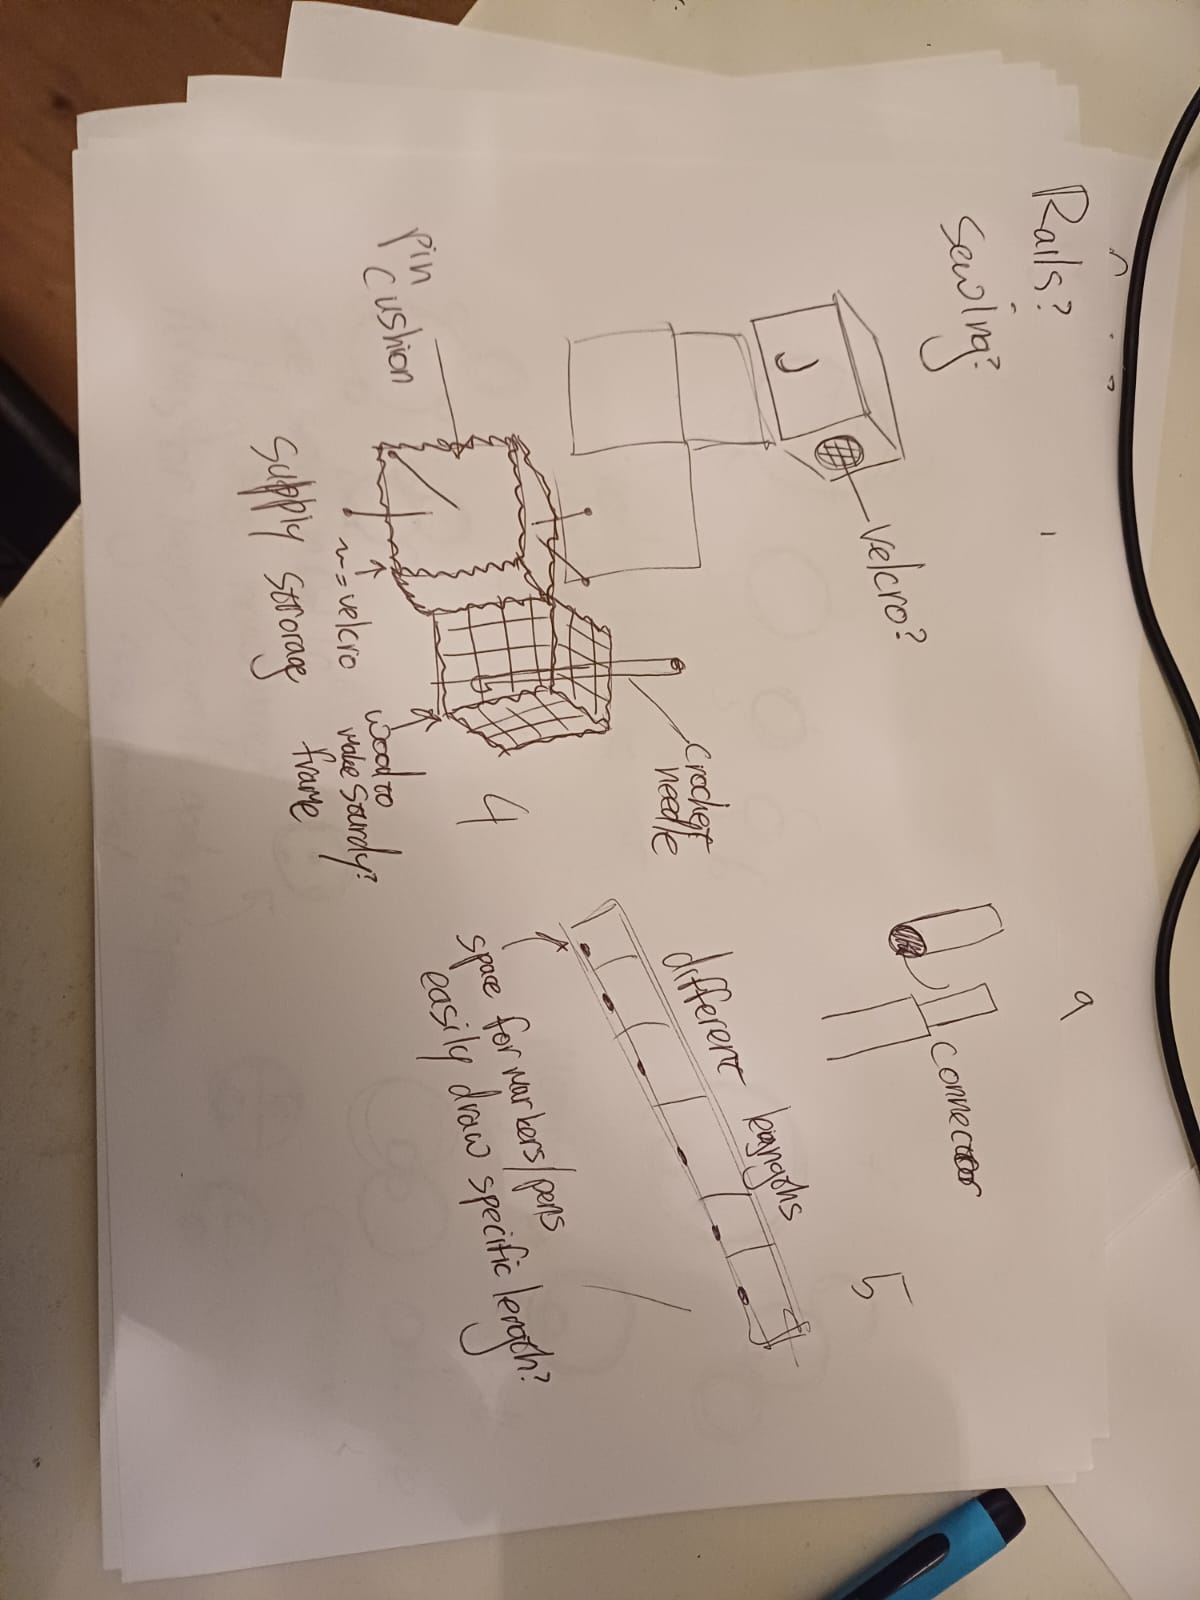 Rails?
Sewing?
velcro?
Pin
cushion
~ = velcro
Supply Storage
wood to
make sturdy?
frame
4
crochet
needle
9
connector
5
different
space for markers/pens
easily draw specific length?